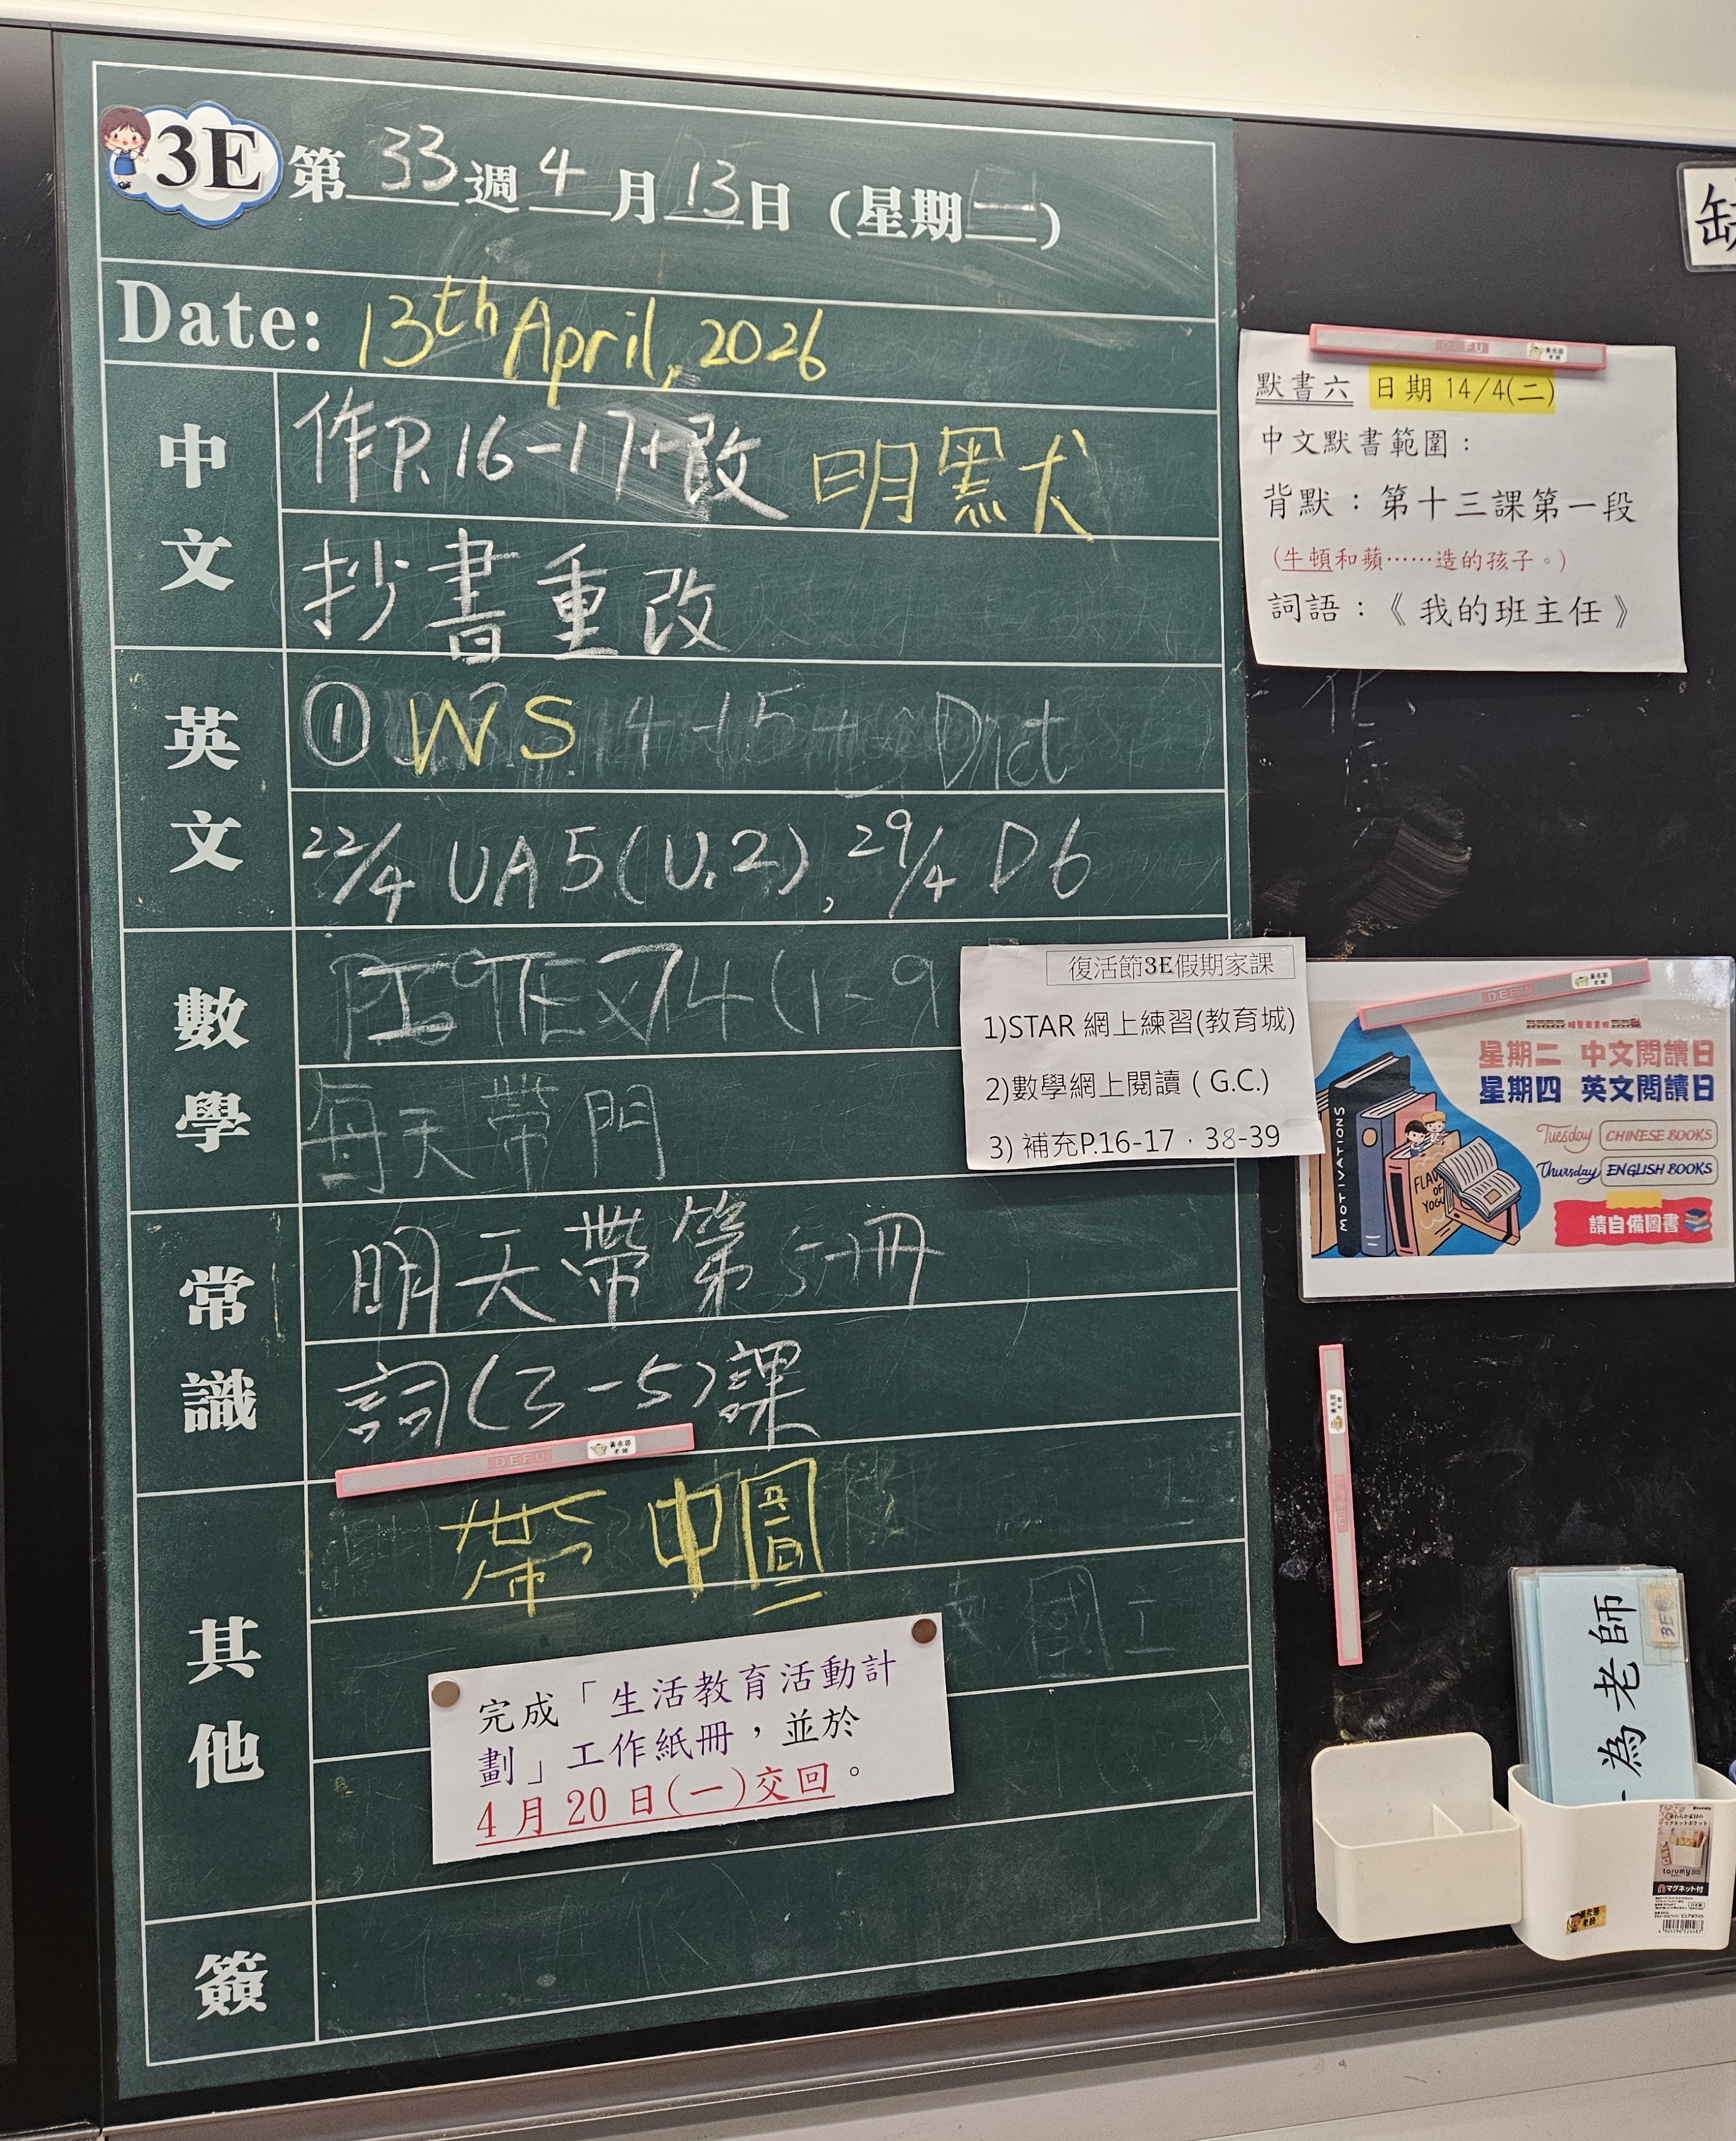 3E 第33週4月13日 (星期一)
Date: 13th April, 2026
中文
作P.16-17+改 明默
抄書重改
英文
① WS
22/4 UA5(U.2), 29/4 D6
數學
每天帶
常識
明天帶第5冊
詞(3-5)課
其他
帶中圖
完成「生活教育活動計
劃」工作紙冊，並於
4月20日(一)交回。
簽
默書六 日期14/4(二)
中文默書範圍：
背默：第十三課第一段
(牛頓和蘋……造的孩子。)
詞語：《我的班主任》
復活節3E假期家課
1)STAR 網上練習(教育城)
2)數學網上閱讀（G.C.)
3) 補充P.16-17，38-39
星期二 中文閱讀日
星期四 英文閱讀日
Tuesday CHINESE BOOKS
Thursday ENGLISH BOOKS
請自備圖書
MOTIVATIONS
DEFU
DEFU
DEFU
為老師
3E
tarumy
マグネット付